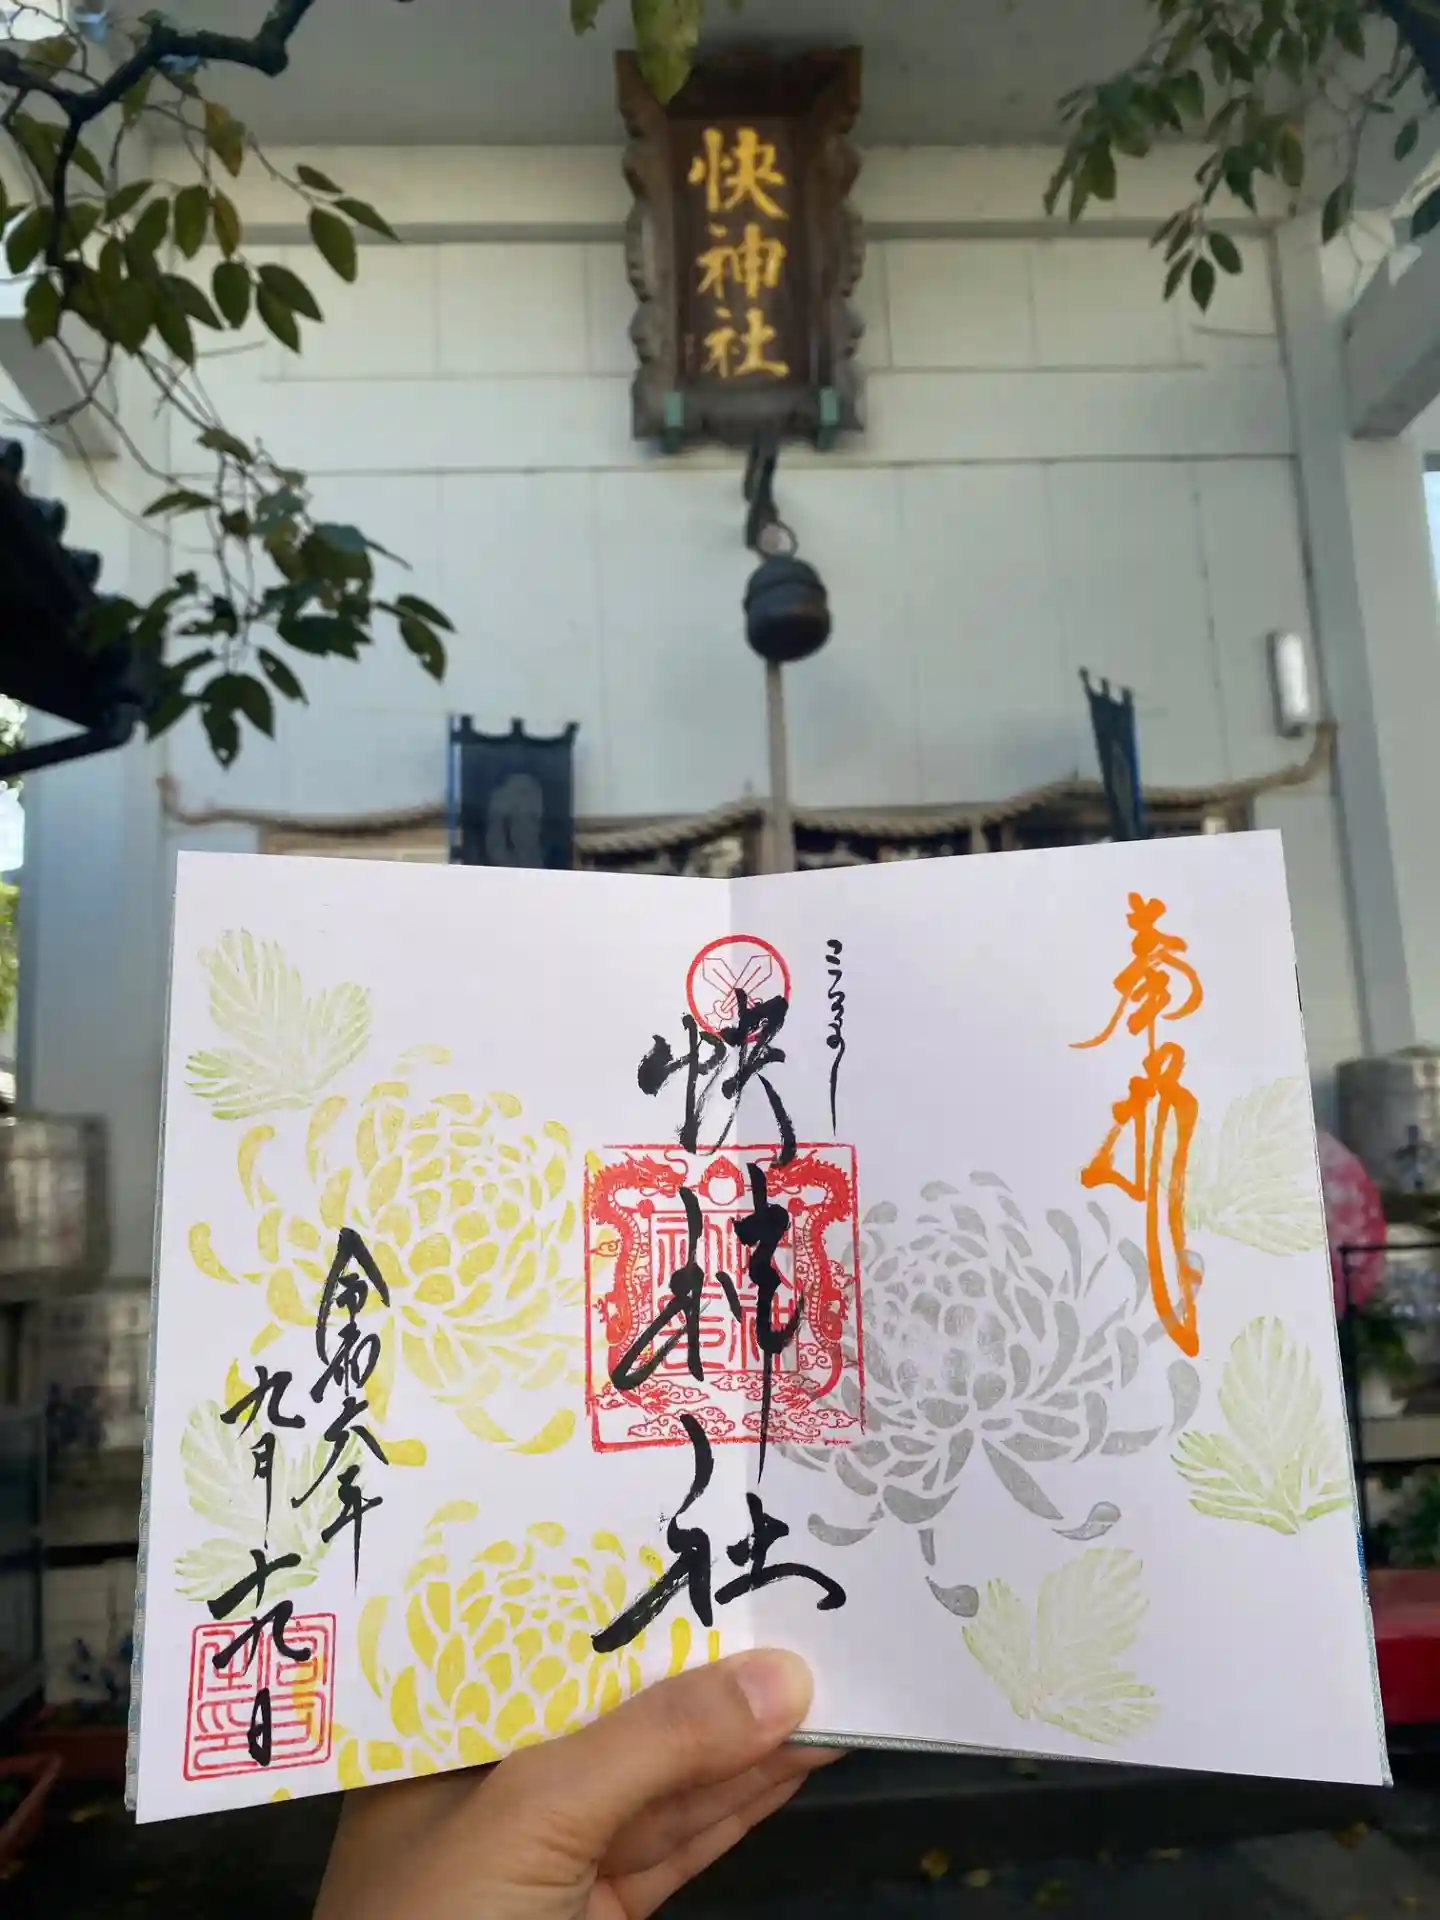 快神社
奉拝
こころよし
快神社
令和六年
九月十九日